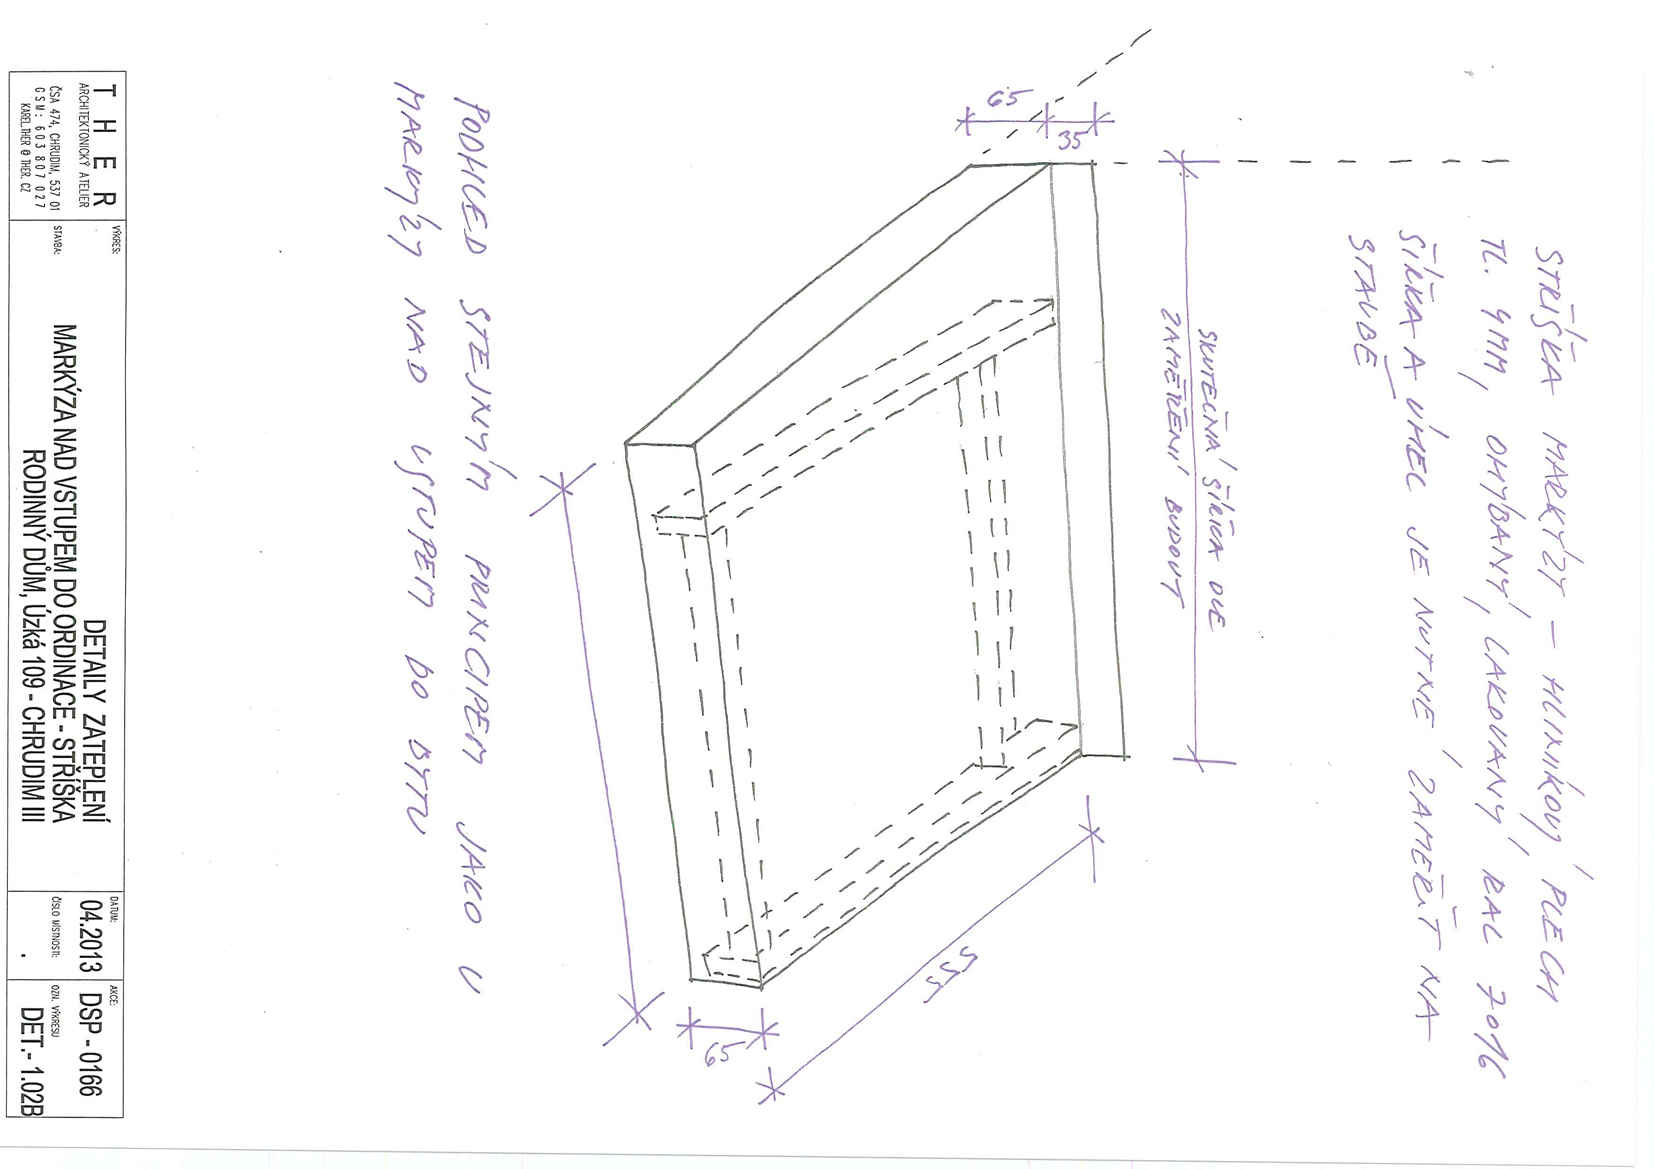 STŘÍŠKA MARKÝZY - HLINÍKOVÝ PLECH
TL. 4MM, OHÝBANÝ, LAKOVANÝ RAL 7016
ŠÍŘKA A ÚHEL JE NUTNÉ ZAMĚŘIT NA
STAVBĚ
SKUTEČNÁ ŠÍŘKA DLE
ZAMĚŘENÍ BUDOUT
65
35
555
65
PODHLED STEJNÝM PRINCIPEM JAKO U
MARKÝZY NAD VSTUPEM DO BYTU
THER
ARCHITEKTONICKÝ ATELIER
ČSA 474, CHRUDIM, 537 01
GSM: 603 807 027
KAREL.THER @ THER.CZ
VÝKRES:
DETAILY ZATEPLENÍ
MARKÝZA NAD VSTUPEM DO ORDINACE - STŘÍŠKA
STAVBA:
RODINNÝ DŮM, Úzká 109 - CHRUDIM III
DATUM:
04.2013
ČÍSLO MÍSTNOSTI:
.
AKCE:
DSP - 0166
OZN. VÝKRESU
DET.- 1.02B